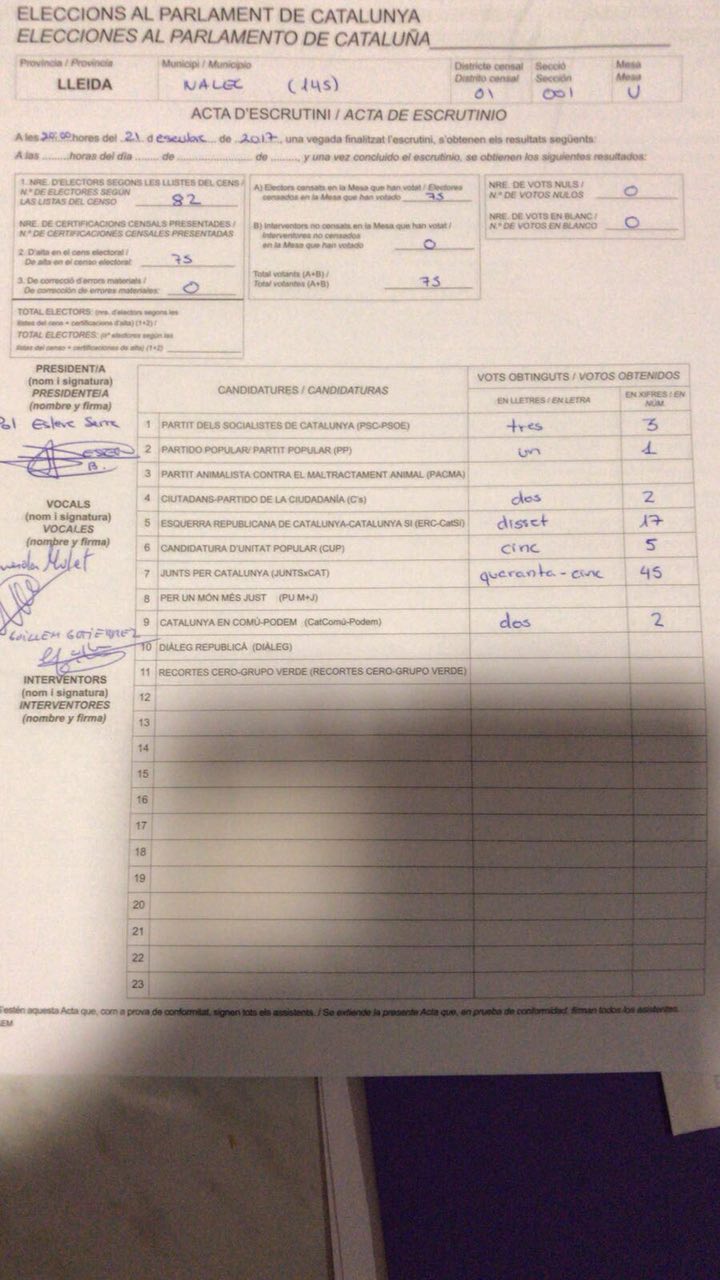 ELECCIONS AL PARLAMENT DE CATALUNYA
ELECCIONES AL PARLAMENTO DE CATALUÑA
Província / Provincia
LLEIDA
Municipi / Municipio
NALEC (145)
Districte censal
Distrito censal
01
Secció
Sección
001
Mesa
Mesa
U
ACTA D'ESCRUTINI / ACTA DE ESCRUTINIO
A les 20:00 hores del 21 d de 2017, una vegada finalitzat l'escrutini, s'obtenen els resultats següents:
A las ......... horas del día ........ de .......................... de ........., y una vez concluido el escrutinio, se obtienen los siguientes resultados:
1. NRE. D'ELECTORS SEGONS LES LLISTES DEL CENS /
N.º DE ELECTORES SEGÚN
LAS LISTAS DEL CENSO 82
NRE. DE CERTIFICACIONS CENSALS PRESENTADES /
N.º DE CERTIFICACIONES CENSALES PRESENTADAS
2. D'alta en el cens electoral /
De alta en el censo electoral: 75
3. De correcció d'errors materials /
De corrección de errores materiales: 0
TOTAL ELECTORS: (nre. d'electors segons les
llistes del cens + certificacions d'alta) (1+2) /
TOTAL ELECTORES: (nº electores según las
listas del censo + certificaciones de alta) (1+2)
A) Electors censats en la Mesa que han votat / Electores
censados en la Mesa que han votado 75
B) Interventors no censats en la Mesa que han votat /
Interventores no censados
en la Mesa que han votado 0
Total votants (A+B) /
Total votantes (A+B) 75
NRE. DE VOTS NULS /
N.º DE VOTOS NULOS 0
NRE. DE VOTS EN BLANC /
N.º DE VOTOS EN BLANCO 0
PRESIDENT/A
(nom i signatura)
PRESIDENTE/A
(nombre y firma)
Esteve Serra
B.
VOCALS
(nom i signatura)
VOCALES
(nombre y firma)
Molet
GUILLEM GUTIERREZ
INTERVENTORS
(nom i signatura)
INTERVENTORES
(nombre y firma)
CANDIDATURES / CANDIDATURAS
VOTS OBTINGUTS / VOTOS OBTENIDOS
EN LLETRES / EN LETRA
EN XIFRES / EN NÚM.
1 PARTIT DELS SOCIALISTES DE CATALUNYA (PSC-PSOE) tres 3
2 PARTIDO POPULAR/ PARTIT POPULAR (PP) un 1
3 PARTIT ANIMALISTA CONTRA EL MALTRACTAMENT ANIMAL (PACMA)
4 CIUTADANS-PARTIDO DE LA CIUDADANÍA (C's) dos 2
5 ESQUERRA REPUBLICANA DE CATALUNYA-CATALUNYA SÍ (ERC-CatSí) disset 17
6 CANDIDATURA D'UNITAT POPULAR (CUP) cinc 5
7 JUNTS PER CATALUNYA (JUNTSxCAT) queranta-cinc 45
8 PER UN MÓN MÉS JUST (PU M+J)
9 CATALUNYA EN COMÚ-PODEM (CatComú-Podem) dos 2
10 DIÀLEG REPUBLICÀ (DIÀLEG)
11 RECORTES CERO-GRUPO VERDE (RECORTES CERO-GRUPO VERDE)
12
13
14
15
16
17
18
19
20
21
22
23
S'estén aquesta Acta que, com a prova de conformitat, signen tots els assistents. / Se extiende la presente Acta que, en prueba de conformidad, firman todos los asistentes.